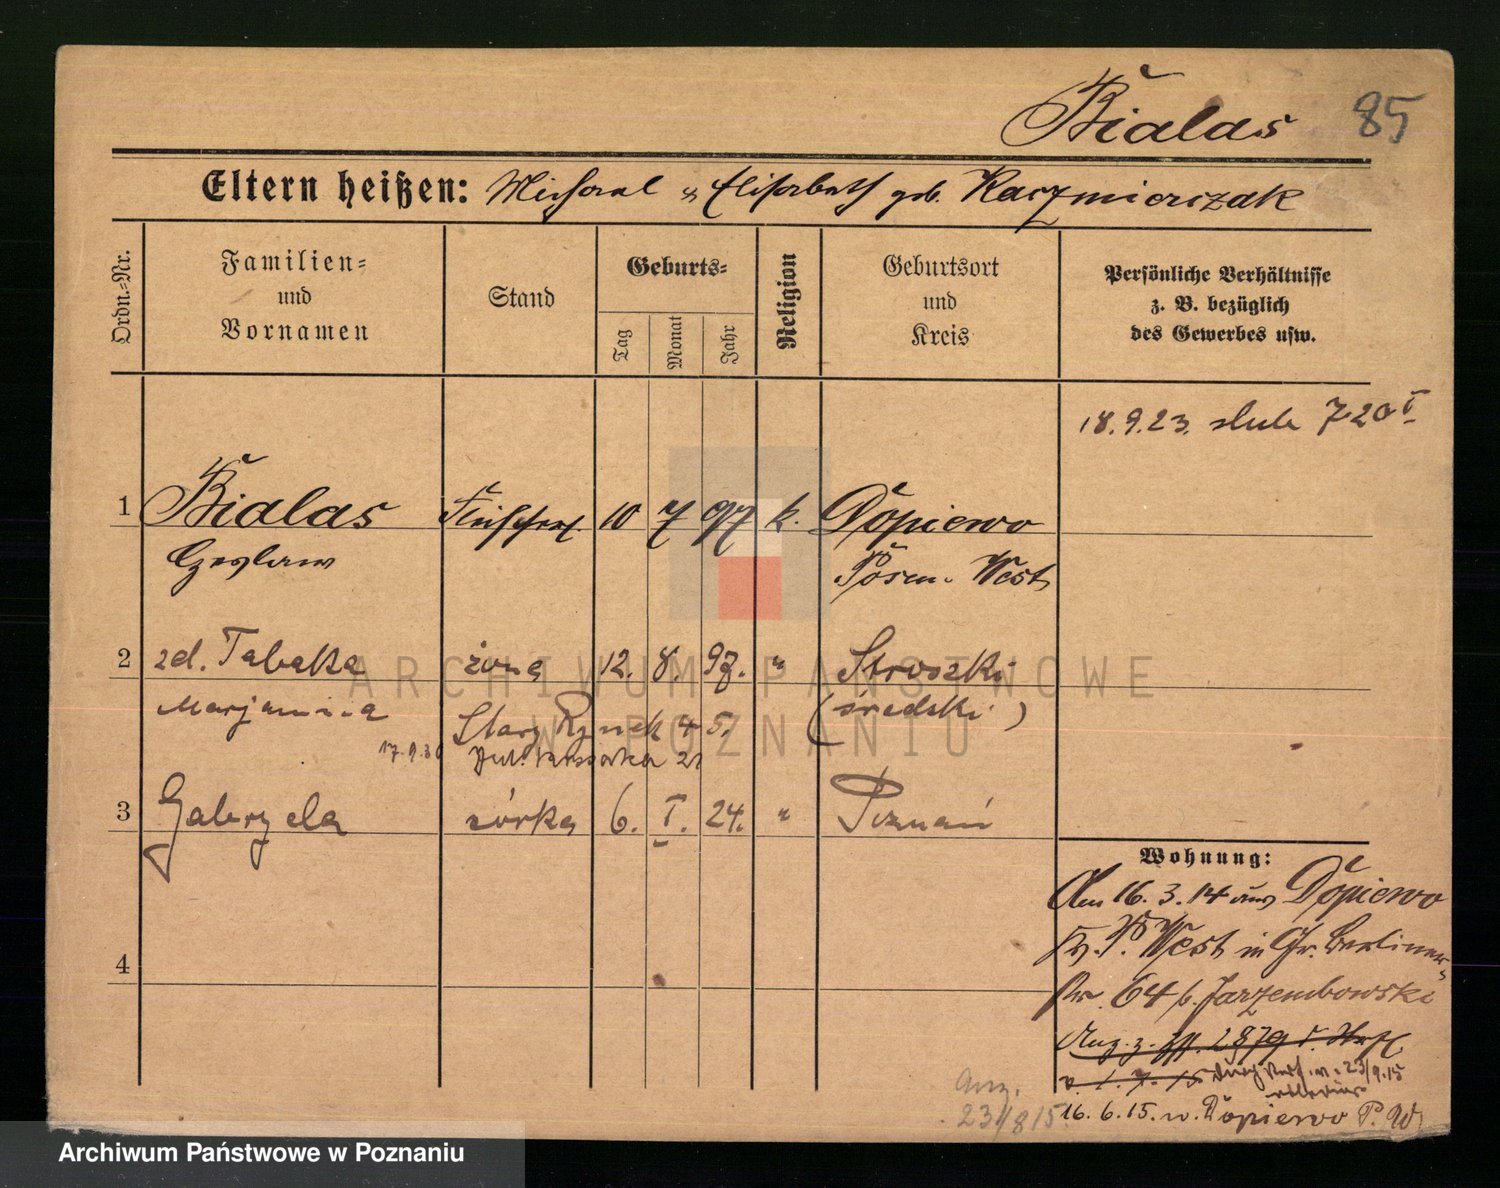 Bialas 85
Eltern heißen: Michael u Elisabeth geb. Kaczmierczak
Ordn.-Nr.
Familien-
und
Vornamen
Stand
Geburts-
Tag
Monat
Jahr
Religion
Geburtsort
und
Kreis
Persönliche Verhältnisse
z. B. bezüglich
des Gewerbes usw.
18.9.23. slub 720 I
1 Bialas Fleischerl. 10 7 97 k. Dopiewo
Ceslaw Posen. West
2 zd. Tabaka żona 12. 8. 97. " Stroszki
Marjanna Stary Rynek 45. (średzki)
17.9.30 21
3 Gabryela córka 6. I. 24. " Poznań
4
Wohnung:
Am 16.3.14 aus Dopiewo
Kr. P. West in Gr. Berliner-
str. 64 b. Jarzembowski
Anz. z. 2879
v. 1.7.15 durch v. 23/9.15
16.6.15. n. Dopiewo P. W
Anz.
23/8 15.
ARCHIWUM PAŃSTWOWE
W POZNANIU
Archiwum Państwowe w Poznaniu